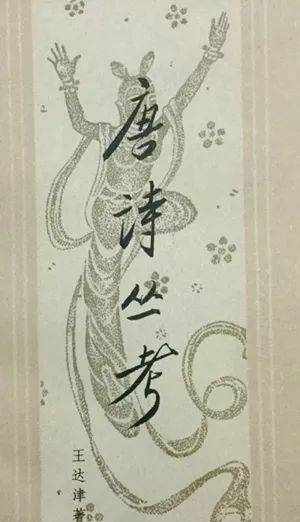 唐诗丛考
王达津著